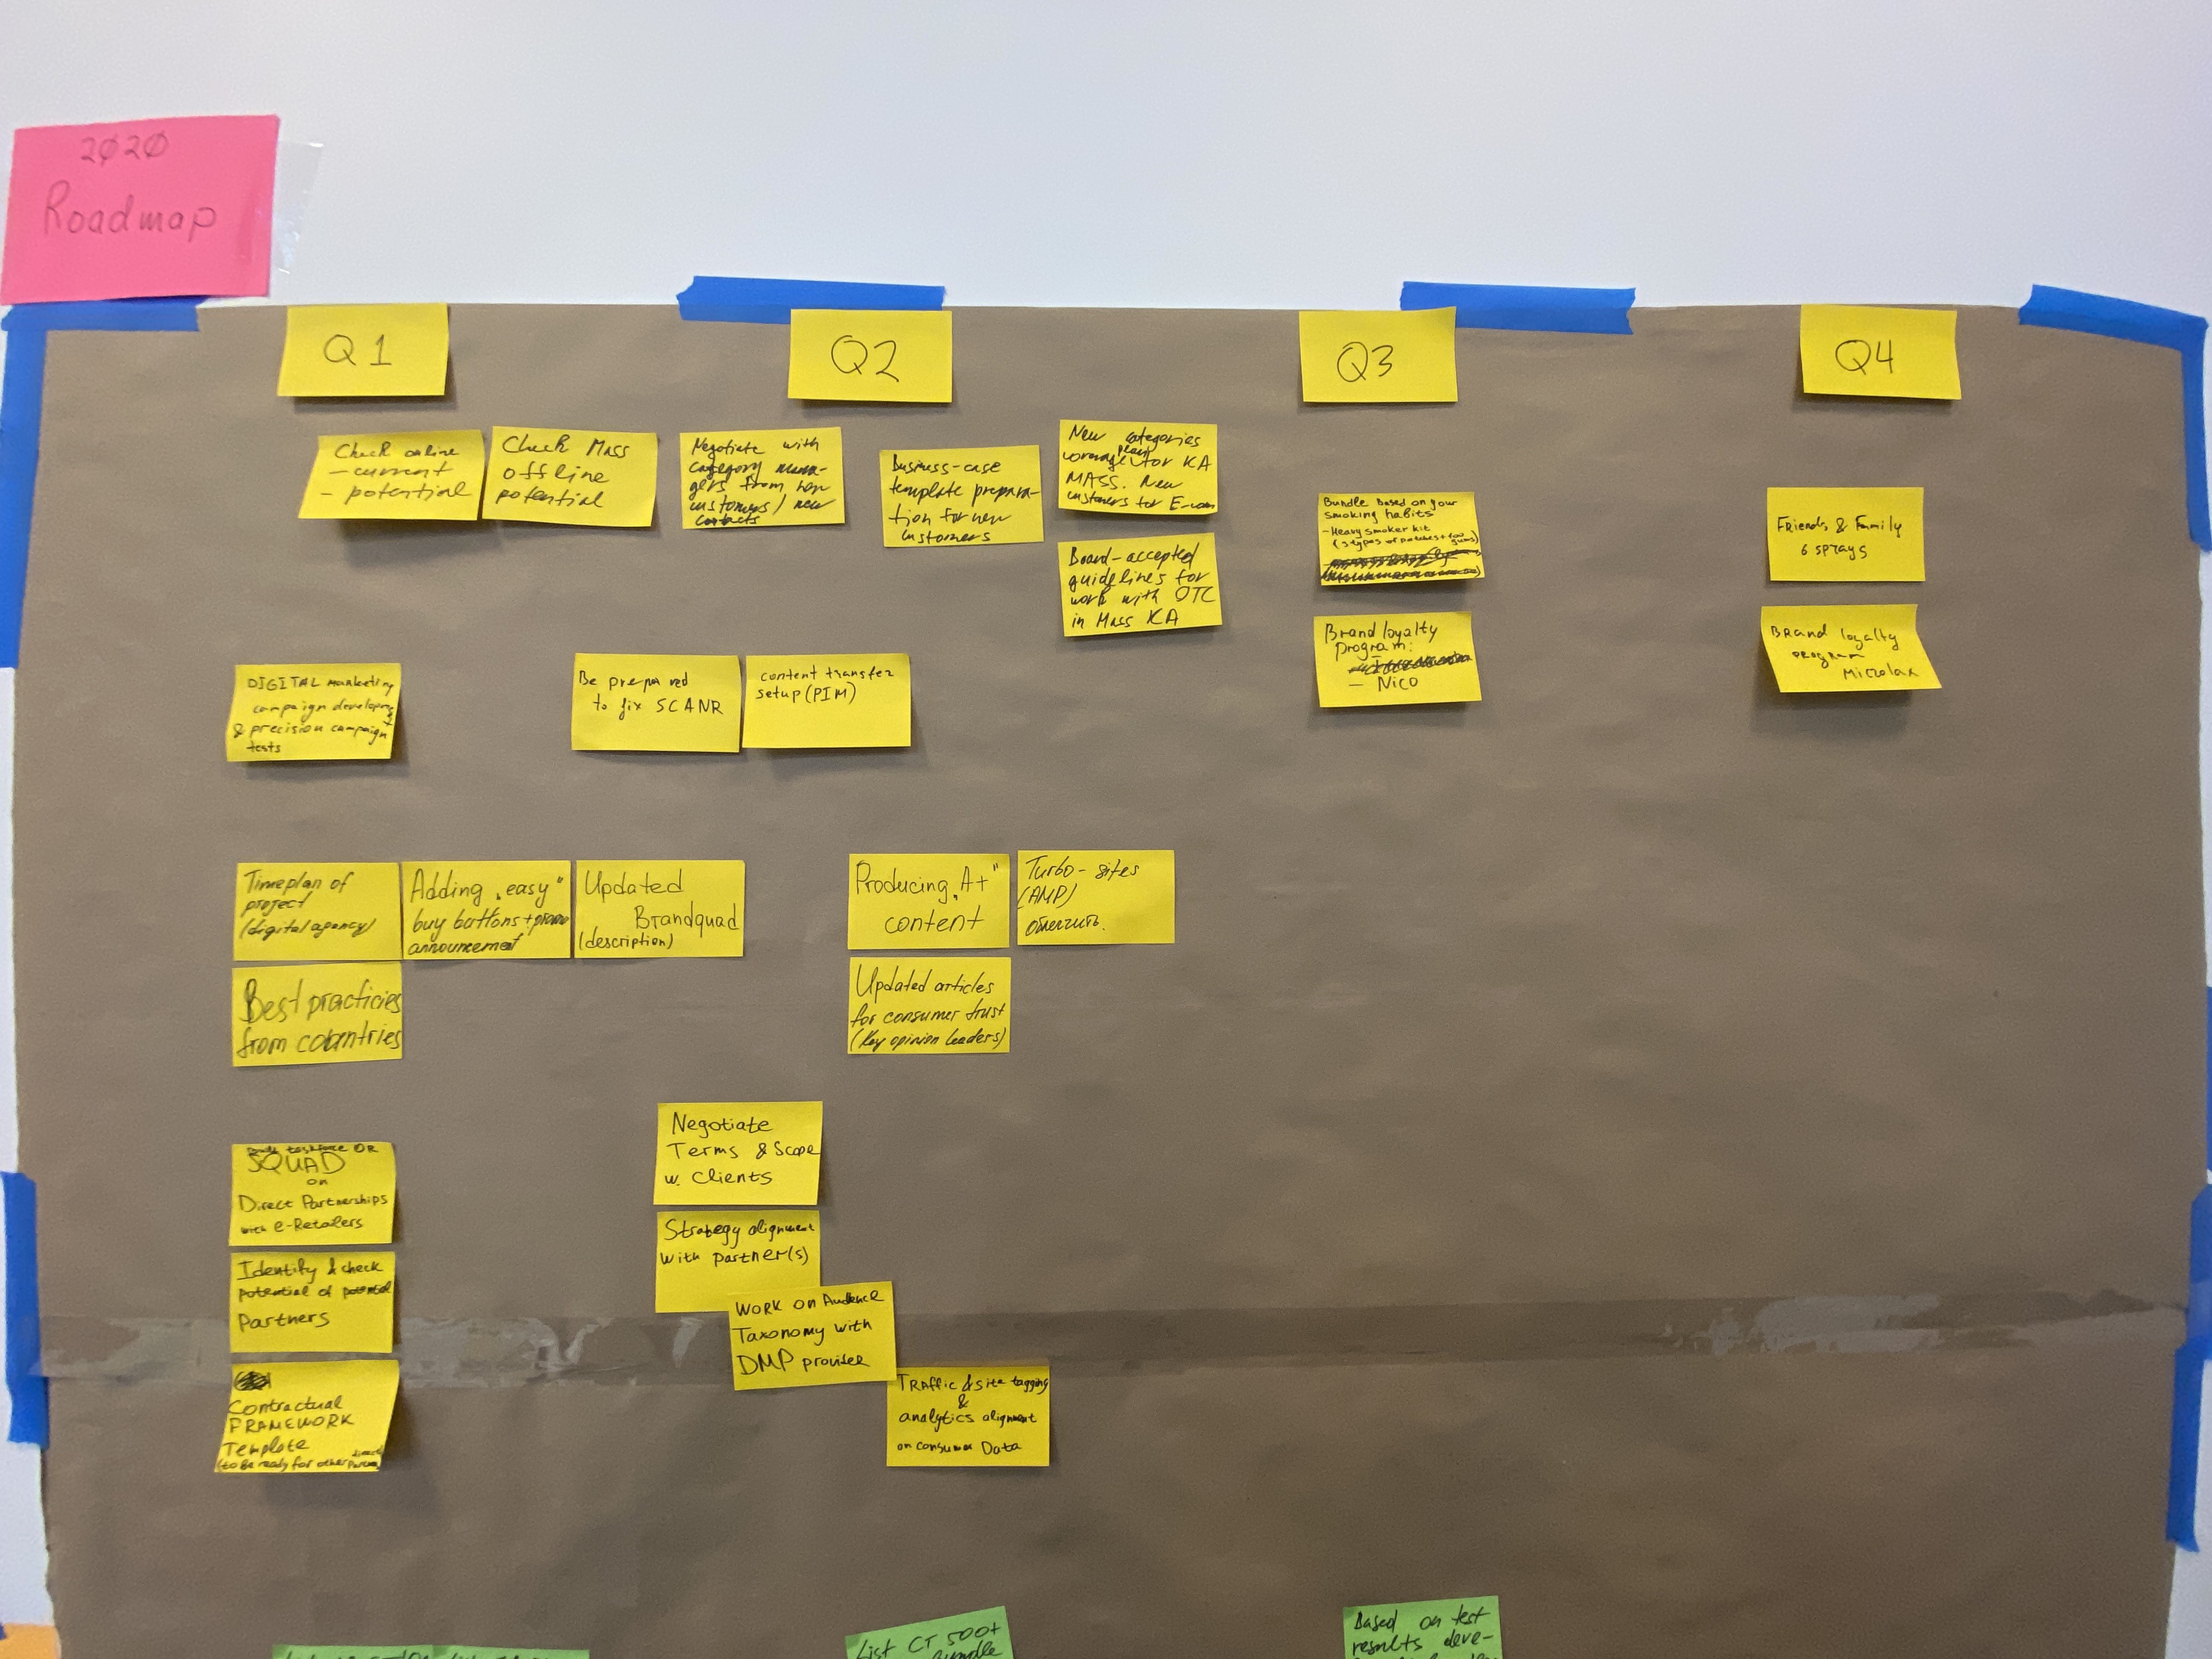 2020
Roadmap
Q1
Q2
Q3
Q4
Check online
- current
- potential
Check Mass
offline
potential
Negotiate with
category mana-
gers from new
customers / new
contacts
Business-case
template prepara-
tion for new
customers
New categories
plan
coverage for KA
MASS. New
customers for E-com
Board-accepted
guidelines for
work with OTC
in Mass KA
Bundle based on your
smoking habits
- Heavy smoker kit
(3 types of patches +
gums)
Brand loyalty
program:
- Nico
Friends & Family
6 sprays
Brand loyalty
program
Microlax
DIGITAL marketing
campaign
& precision campaign
tests
Be prepared
to fix SCANR
content transfer
setup (PIM)
Timeplan of
project
(digital agency)
Adding „easy"
buy buttons + promo
announcement
Updated
Brandquad
(description)
Producing „A+"
content
Turbo-sites
(AMP)
Best practicies
from countries
Updated articles
for consumer trust
(Key opinion leaders)
Negotiate
Terms & Scope
w. Clients
taskforce OR
SQUAD
on
Direct Partnerships
with e-Retailers
Strategy alignment
with partner(s)
Identify & check
potential of potential
Partners
WORK on Audience
Taxonomy with
DMP provider
Contractual
FRAMEWORK
Template
(to be ready for other
TRAffic & site tagging
&
analytics alignment
on consumer Data
List CT 500+
Bundle
Based on test
results deve-